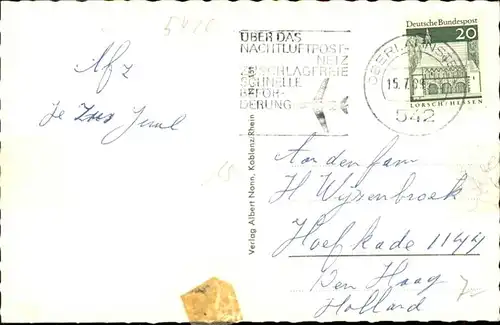 5416
Afz
je Zus Jeml
ÜBER DAS
NACHTLUFTPOST-
NETZ
ZUSCHLAGFREIE
SCHNELLE
BEFÖR-
DERUNG
Deutsche Bundespost
20
LORSCH/HESSEN
OBERLAHNSTEIN
15.7.69
542
Verlag Albert Nonn, Koblenz/Rhein
Aan den fam
H Wijzenbroek
Hoefkade 1144
Den Haag
Holland